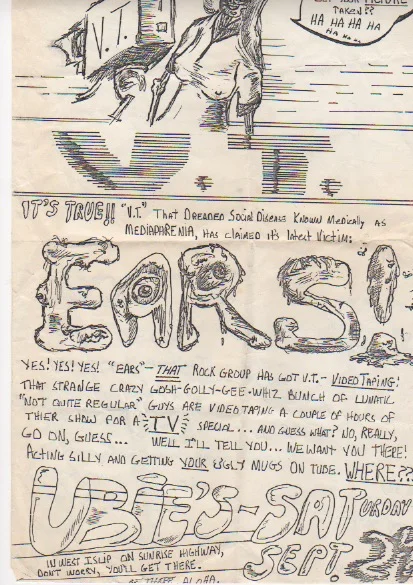 TAKEN??
HA HA HA HA
HA HA..
V.T.
V.T.
IT'S TRUE!! "V.T." THAT DREADED SOCIAL DISEASE KNOWN MEDICALLY AS
MEDIAPHRENIA, HAS CLAIMED ITS LATEST VICTIM:
EARS!
YES! YES! YES! "EARS"- THAT ROCK GROUP HAS GOT V.T.- VIDEO TAPING!
THAT STRANGE CRAZY GOSH-GOLLY-GEE-WHIZ BUNCH OF LUNATIC
"NOT QUITE REGULAR" GUYS ARE VIDEOTAPING A COUPLE OF HOURS OF
THIER SHOW FOR A TV SPECIAL... AND GUESS WHAT? NO, REALLY,
GO ON, GUESS... WELL I'LL TELL YOU... WE WANT YOU THERE!
ACTING SILLY AND GETTING YOUR UGLY MUGS ON TUBE. WHERE??
UBIE'S-SATURDAY
SEPT.
IN WEST ISLIP ON SUNRISE HIGHWAY,
DON'T WORRY, YOU'LL GET THERE.
BE THERE ALOHA.